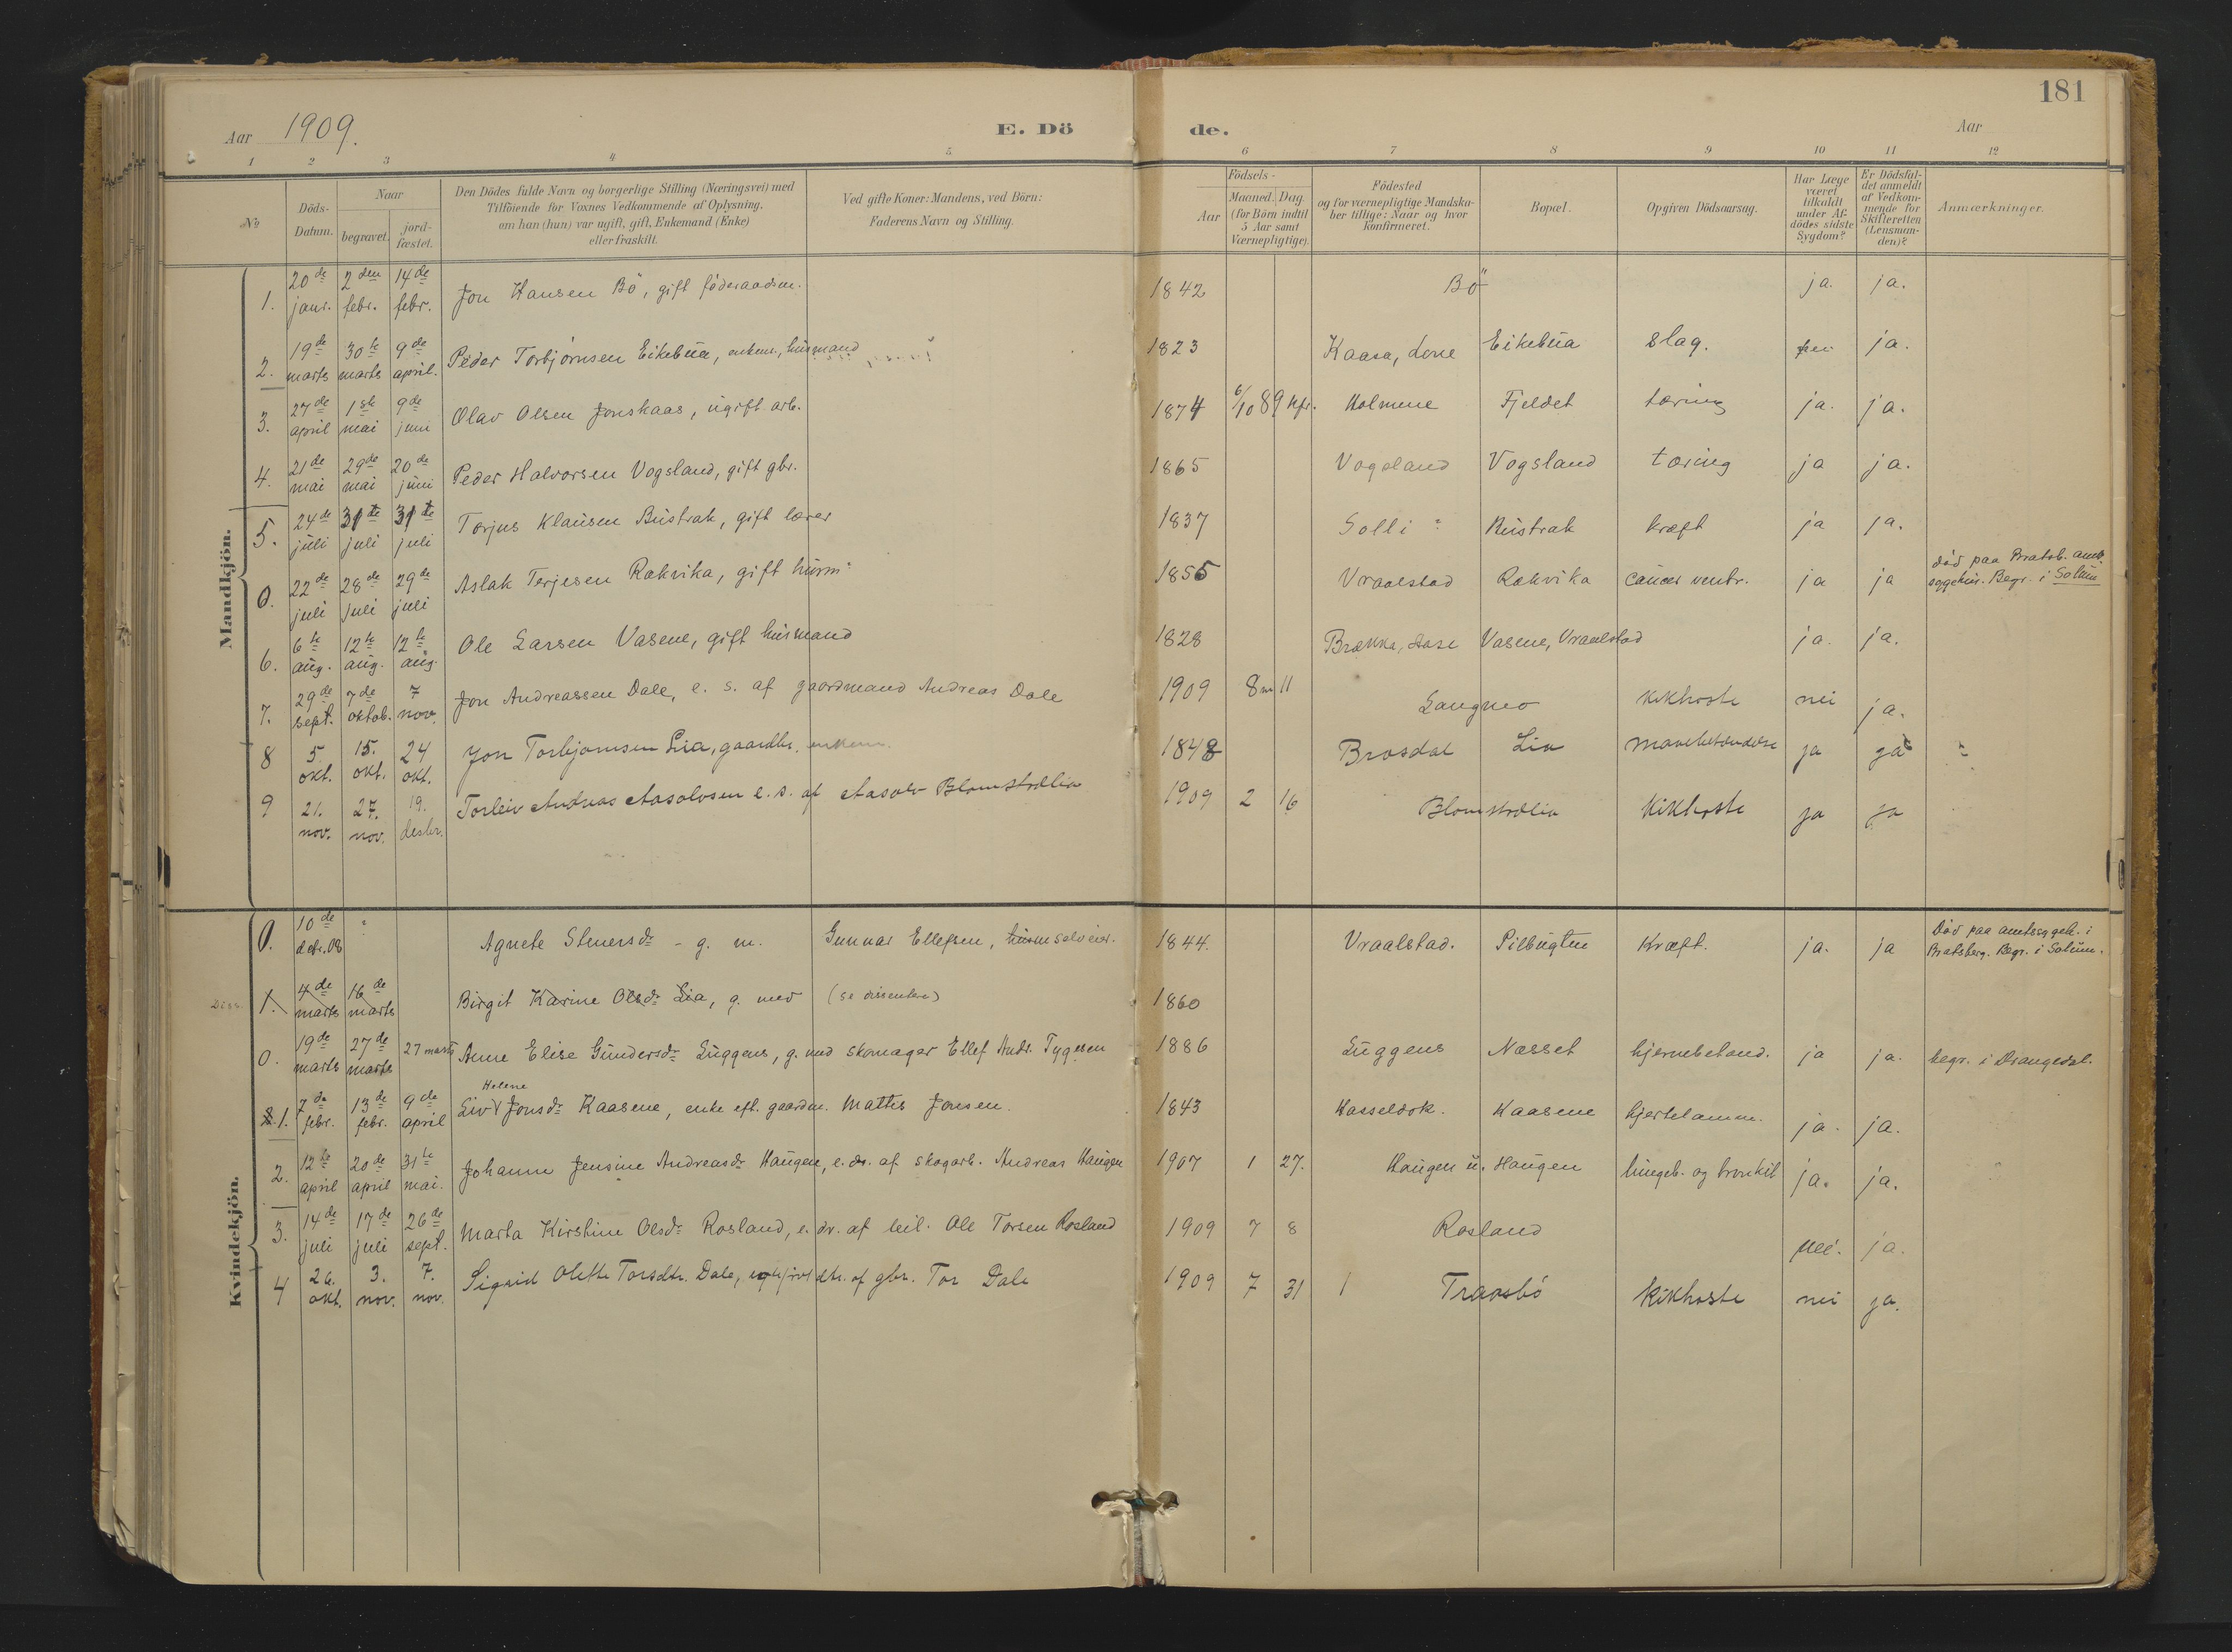 181
Aar 1909. E. Dö de. Aar
1 2 3 4 5 6 7 8 9 10 11 12
No
Döds-Datum.
Naar
begravet. jord-fæstet.
Den Dödes fulde Navn og borgerlige Stilling (Næringsvei) med
Tilföiende for Voxnes Vedkommende af Oplysning,
om han (hun) var ugift, gift, Enkemand (Enke)
eller fraskilt.
Ved gifte Koner: Mandens, ved Börn:
Faderens Navn og Stilling.
Födsels-
Aar Maaned. Dag.
(for Börn indtil
5 Aar samt
Værnepligtige).
Födested
og for værnepligtige Mandska-
ber tillige: Naar og hvor
konfirmeret.
Bopæl.
Opgiven Dödsaarsag.
Har Læge
været
tilkaldt
under Af-
dödes sidste
Sygdom?
Er Dödsfal-
det anmeldt
af Vedkom-
mende for
Skifteretten
(Lensman-
den)?
Anmærkninger.
Mandkjön.
1. 20de janr. 2den febr. 14de febr. Jon Hansen Bö, gift föderaadsm. 1842 Bö ja. ja.
2. 19de marts 30te marts 9de april. Peder Torbjørnsen Eikebua, enkem., husmand 1823 Kaasa, Eikebua slag. ja.
3. 27de april 1ste mai 9de juni Olav Olsen Jonskaas, ugift arb. 1874 6/10 89 kfr. Holmene Fjeldet tæring ja. ja.
4. 21de mai 29de mai 20de juni Peder Halvorsen Vogsland, gift gbr. 1865 Vogsland Vogsland tæring ja ja.
5. 24de juli 31te juli 31te juli Torjus Klausen Bustrak, gift lærer 1837 Solli Bustrak kræft ja ja.
0. 22de juli 28de juli 29de juli Aslak Terjesen Rakvika, gift husm. 1855 Vraalstad Rakvika cancer ventr. ja ja död paa Bratsb. amts
sygehus. Begr. i Solum
6. 6te aug. 12te aug. 12te aug. Ole Larsen Vasene, gift husmand 1828 Brækka, Vasene, Vraalstad ja. ja.
7. 29de sept. 7de oktob. 7 nov. Jon Andreassen Dale, e. s. af gaardmand Andreas Dale 1909 8m 11 Langmo kikhoste nei ja.
8 5. okt. 15. okt. 24 okt. Jon Torbjørnsen Lia, gaardbr. enkem. 1848 Brosdal Lia mavebetændelse ja ja
9 21. nov. 27. nov. 19. desbr. Torleiv Andreas Aasolvsen e. s. af Aasolv Blomstrdlia 1909 2 16 Blomstrdlia Kikhoste ja ja
Kvindekjön.
0. 10de debr. 08 Agnete Stenersdr - g. m. Gunnar Ellefsen, husm selveier. 1844. Vraalstad. Pilbugten Kræft. ja. ja Död paa amtssygeh. i
Bratsberg. Begr. i Solum.
Diss. 1. 4de marts 16de marts Birgit Karine Olsdr Lia, g. med (se dissentere) 1860
0. 19de marts 27de marts 27 marts Anne Elise Gundersdr Luggens, g. med skomager Ellef Andr. Tygesen 1886 Luggens Næsset hjernebetænd. ja ja. begr. i Drangedal.
1. 7de febr. 13de febr. 9de april Liv Helene Jonsdr Kaasene, enke eft. gaardm. Mattis Jonsen. 1843 Hasseldok. Kaasene hjertelamm. ja. ja.
2. 12te april 20de april 31te mai. Johanne Jensine Andreasdr Haugen, e. dr. af skogarb. Andreas Haugen 1907 1 27. Haugen u. Haugen lungeb. og bronkit ja. ja.
3. 14de juli 17de juli 26de sept. Marta Kirstine Olsdr Rosland, e. dr. af leil. Ole Torsen Rosland 1909 7 8 Rosland nei. ja.
4 26. okt. 3. nov. 7. nov. Sigrid Olette Torsdtr. Dale, dtr. af gbr. Tor Dale 1909 7 31 Traasbö Kikhoste nei ja.